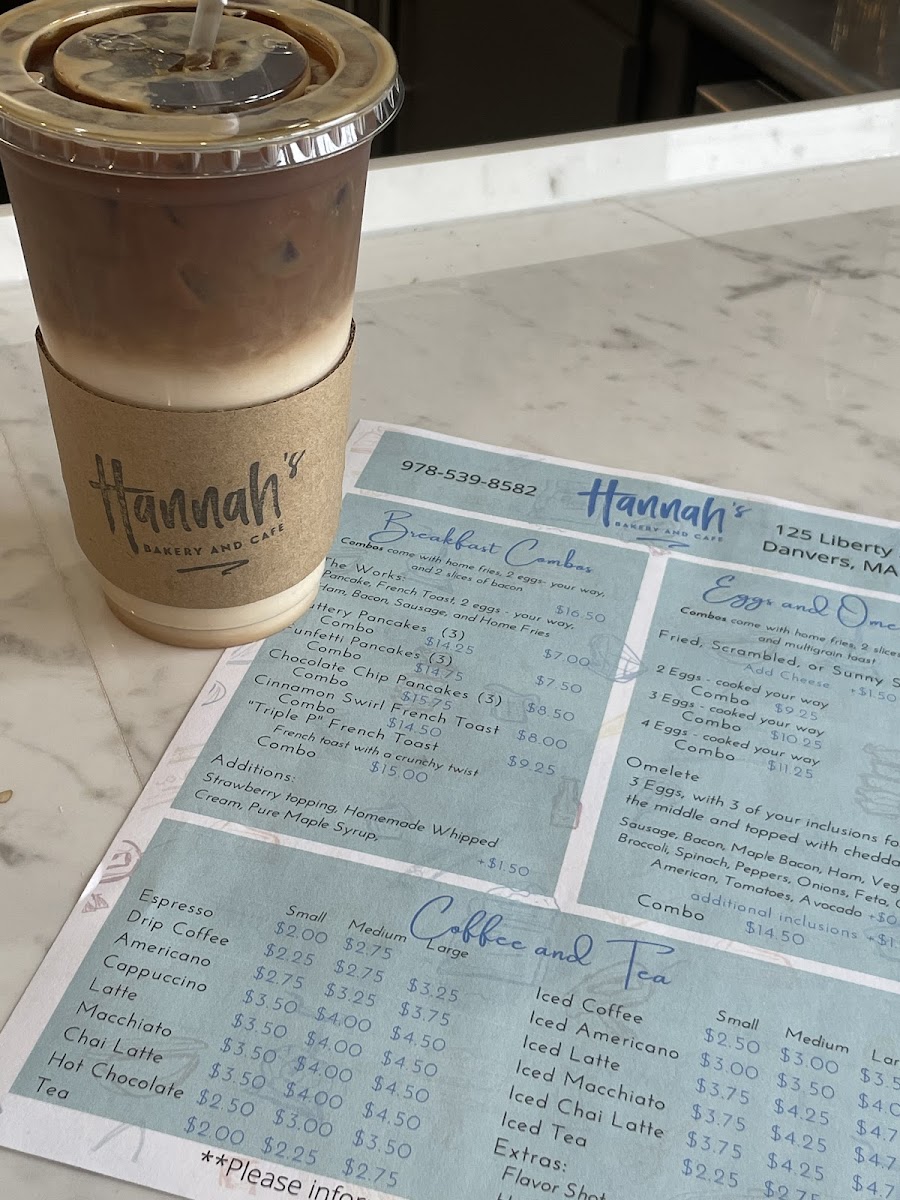 Hannah's
BAKERY AND CAFE
978-539-8582
Hannah's
BAKERY AND CAFE
125 Liberty
Danvers, MA
Breakfast Combos
Combos come with home fries, 2 eggs- your way,
and 2 slices of bacon
The Works: $16.50
Pancake, French Toast, 2 eggs - your way,
Ham, Bacon, Sausage, and Home Fries
Buttery Pancakes (3) $7.00
Combo $14.25
Funfetti Pancakes (3) $7.50
Combo $14.75
Chocolate Chip Pancakes (3) $8.50
Combo $15.75
Cinnamon Swirl French Toast $8.00
Combo $14.50
"Triple P" French Toast $9.25
French toast with a crunchy twist
Combo $15.00
Additions:
Strawberry topping, Homemade Whipped
Cream, Pure Maple Syrup, +$1.50
Eggs and Ome
Combos come with home fries, 2 slices
and multigrain toast
Fried, Scrambled, or Sunny S
Add Cheese +$1.50
2 Eggs - cooked your way
Combo $9.25
3 Eggs - cooked your way
Combo $10.25
4 Eggs - cooked your way
Combo $11.25
Omelete
3 Eggs, with 3 of your inclusions fo
the middle and topped with chedda
Sausage, Bacon, Maple Bacon, Ham, Veg
Broccoli, Spinach, Peppers, Onions, Feta,
American, Tomatoes, Avocado +$0
additional inclusions +$1
Combo $14.50
Coffee and Tea
Small Medium Large
Espresso $2.00 $2.75
Drip Coffee $2.25 $2.75 $3.25
Americano $2.75 $3.25 $3.75
Cappuccino $3.50 $4.00 $4.50
Latte $3.50 $4.00 $4.50
Macchiato $3.50 $4.00 $4.50
Chai Latte $3.50 $4.00 $4.50
Hot Chocolate $2.50 $3.00 $3.50
Tea $2.00 $2.25 $2.75
Small Medium Lar
Iced Coffee $2.50 $3.00 $3.5
Iced Americano $3.00 $3.50 $4.0
Iced Latte $3.75 $4.25 $4.7
Iced Macchiato $3.75 $4.25 $4.7
Iced Chai Latte $3.75 $4.25 $4.7
Iced Tea $2.25 $2.7
Extras:
Flavor Shot
**Please infor